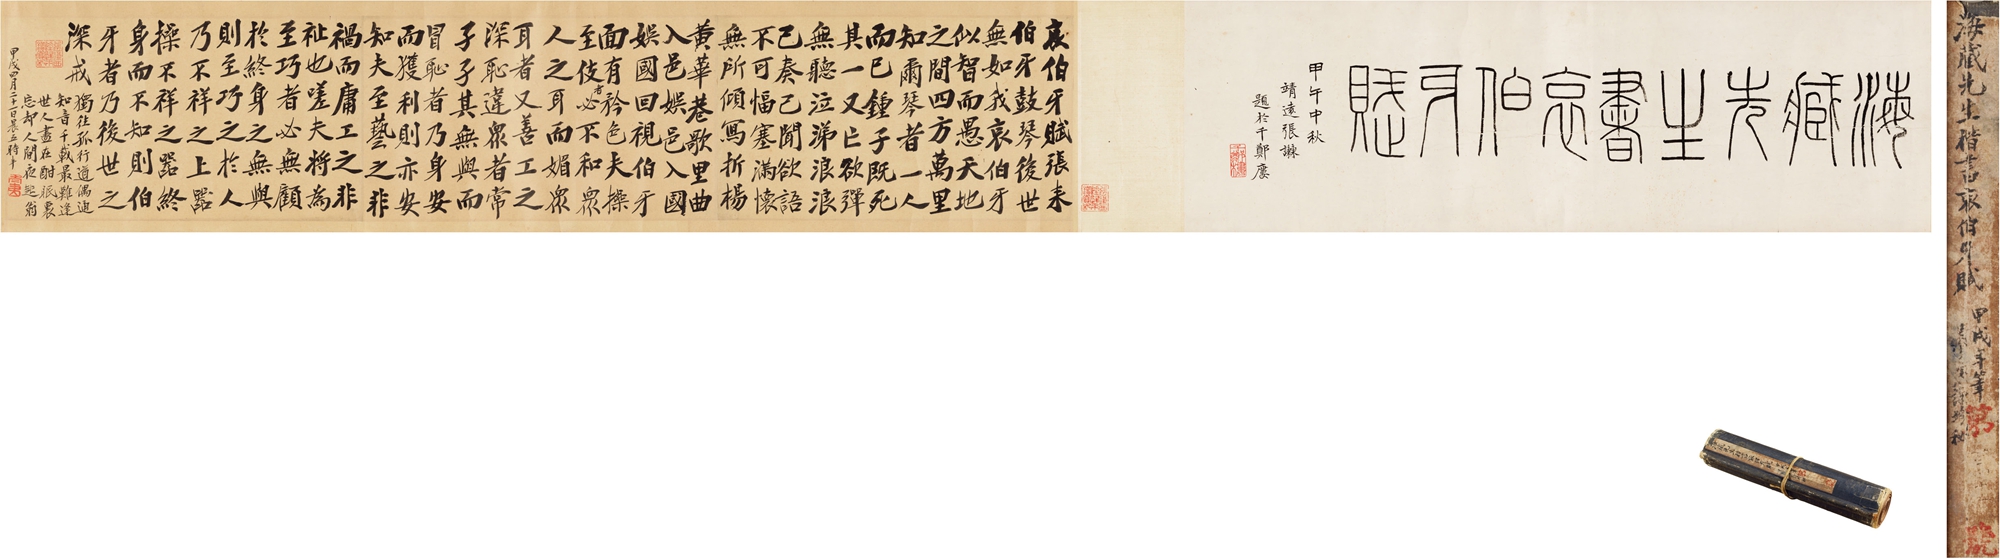 海藏先生楷書哀伯牙賦
甲戌年筆
海臧先生書哀伯牙賦
甲午中秋
靖遠張
題於千鄭廔
哀伯牙賦張耒
伯牙鼓琴後世
無如我哀伯牙
似智而愚天地
之間四方萬里
知爾琴者一人
而已鍾子既死
其一又亡欲彈
無聽泣涕浪浪
已奏已聞欲語
不可愊塞滿懷
無所傾寫折楊
黃華巷歌里曲
入邑娛邑入國
娛國回視伯牙
面有矜色夫操
至伎者必不和眾
人之耳而媚眾
耳者又善工之
深恥違眾者常
孑孑其無與而
冒恥者乃身安
而獲利則亦安
知夫至藝之非
禍而庸工之非
祉也嗟夫將為
至巧者必無顧
於終身之無與
則至巧之於人
乃不祥之上器
操不祥之器終
身而不知則伯
牙者乃後世之
深戒
獨往孤行道偶
知音千載最難逢
世人盡在酣眠裏
忘卻人間夜起翁
甲戌四月二十一日晨五時半